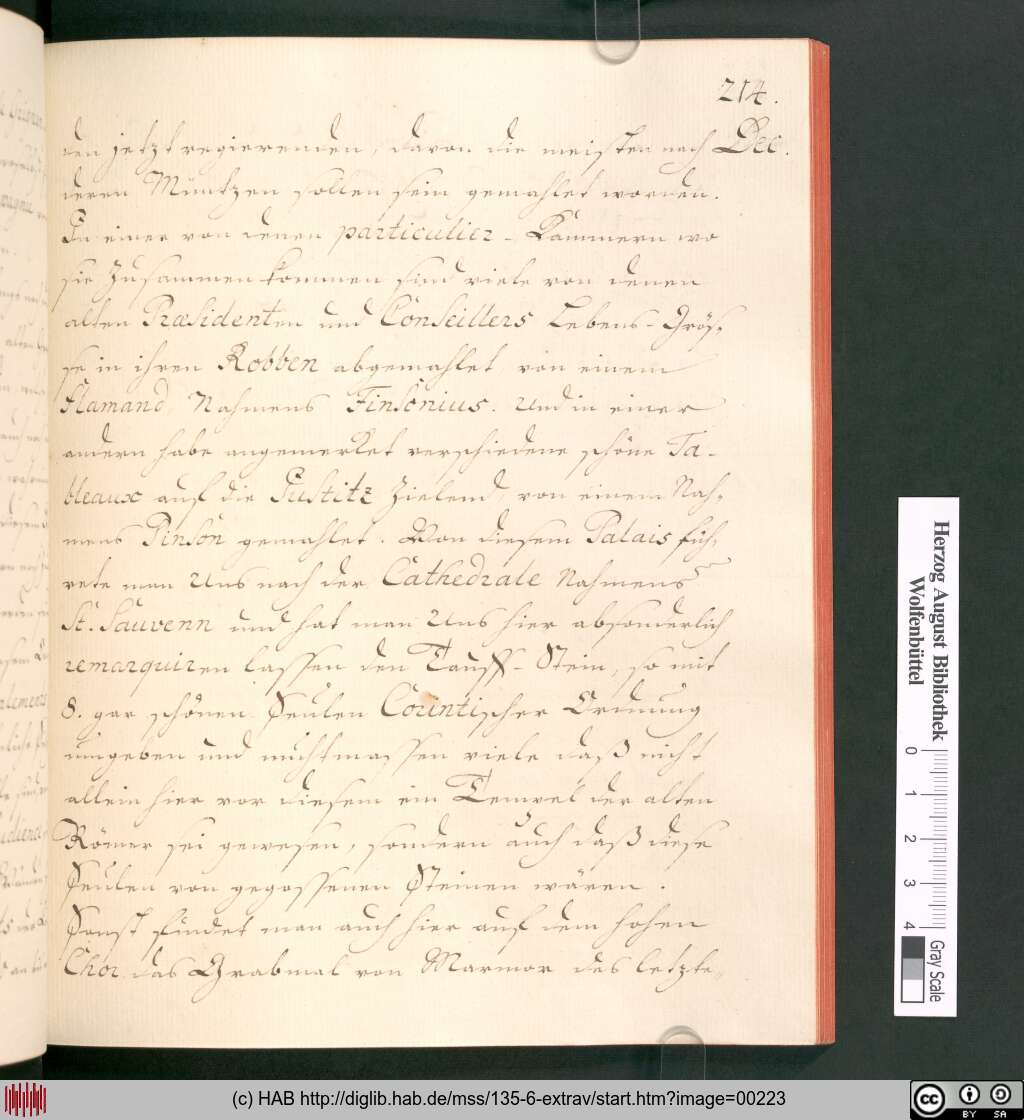 214.
den jetzt regierenden, davon die meisten nach Dec.
deren Müntzen sollen sein gemahlet worden.
In einer von denen particulier-Kammern wo
sie Zusammen kommen sind viele von denen
alten Præsidenten und Conseillers Lebens-Grös-
se in ihren Robben abgemahlet von einem
flamand Nahmens Finsonius. Und in einer
andern habe angemerket verschiedene schöne Ta-
bleaux auf die Justitz Zielend, von einem Nah-
mens Pinson gemahlet. Von diesem Palais füh-
rete man Uns nach der Cathedrale Nahmens
St. Sauvenn und hat man Uns hier absonderlich
remarquiren lassen den Tauff-Stein, so mit
8. gar schönen Seulen Corintischer Ordnung
umgeben und muhtmassen viele daß nicht
allein hier vor diesem ein Tempel der alten
Römer sei gewesen, sondern auch daß diese
Seulen von gegossenen Steinen wären.
Sonst findet man auch hier auf dem hohen
Chor das Grabmal von Marmor des letzte-
Herzog August Bibliothek
Wolfenbüttel
0 1 2 3 4
Gray Scale
(c) HAB http://diglib.hab.de/mss/135-6-extrav/start.htm?image=00223
cc BY SA